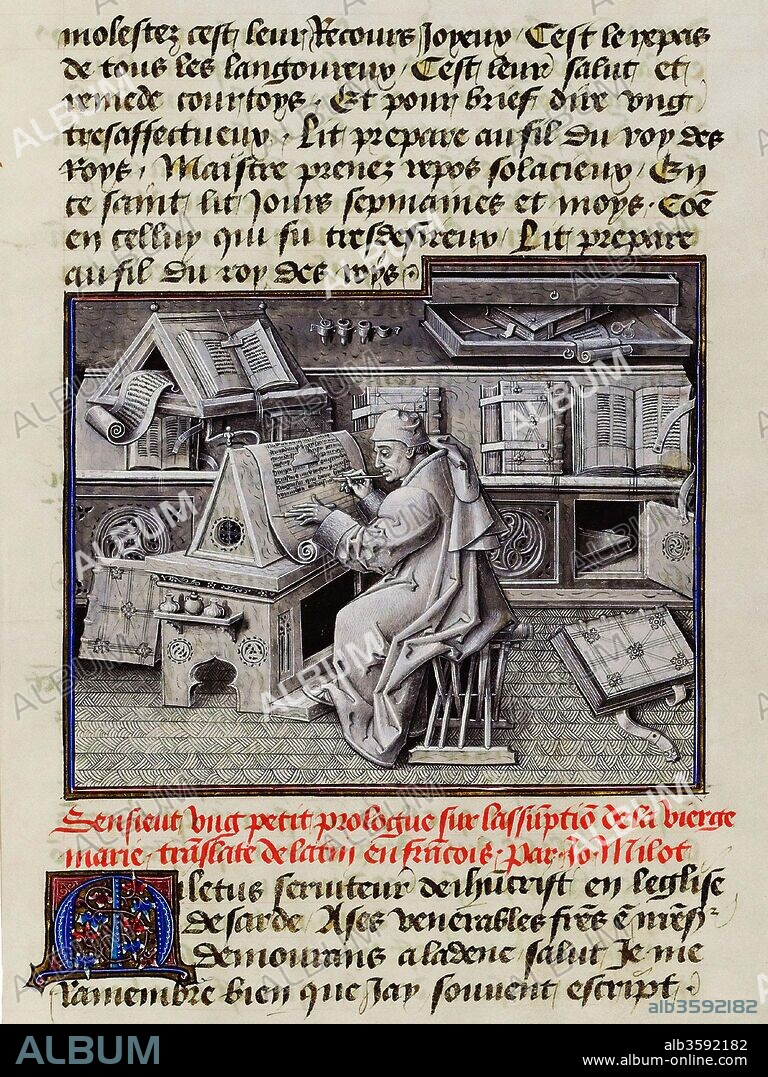 molestez cest leur Recours Joyeux Cest le repas
de tous les langoureux Cest leur salut et
remede courtoys. Et pour brief dire vng
tresaffectueux. Lit prepare au fil du roy des
Roys, Maistre prenez repos solacieux, En
ce saint lit Jours sepmaines et moys. Coe
en celluy qui fu tresdesireux. Lit prepare
au fil du roy des roys.
Sensieut vng petit prologue sur lassuptio de la vierge
marie translate de latin en francois. par Jo. Milot
Miletus seruiteur de ihucrist en leglise
de sarde A ses venerables fres
demourans a ladence salut Je me
Ramembre bien que Jay souuent escript.
ALBUM
alb3592182
ALBUM
alb3592182
www.album-online.com